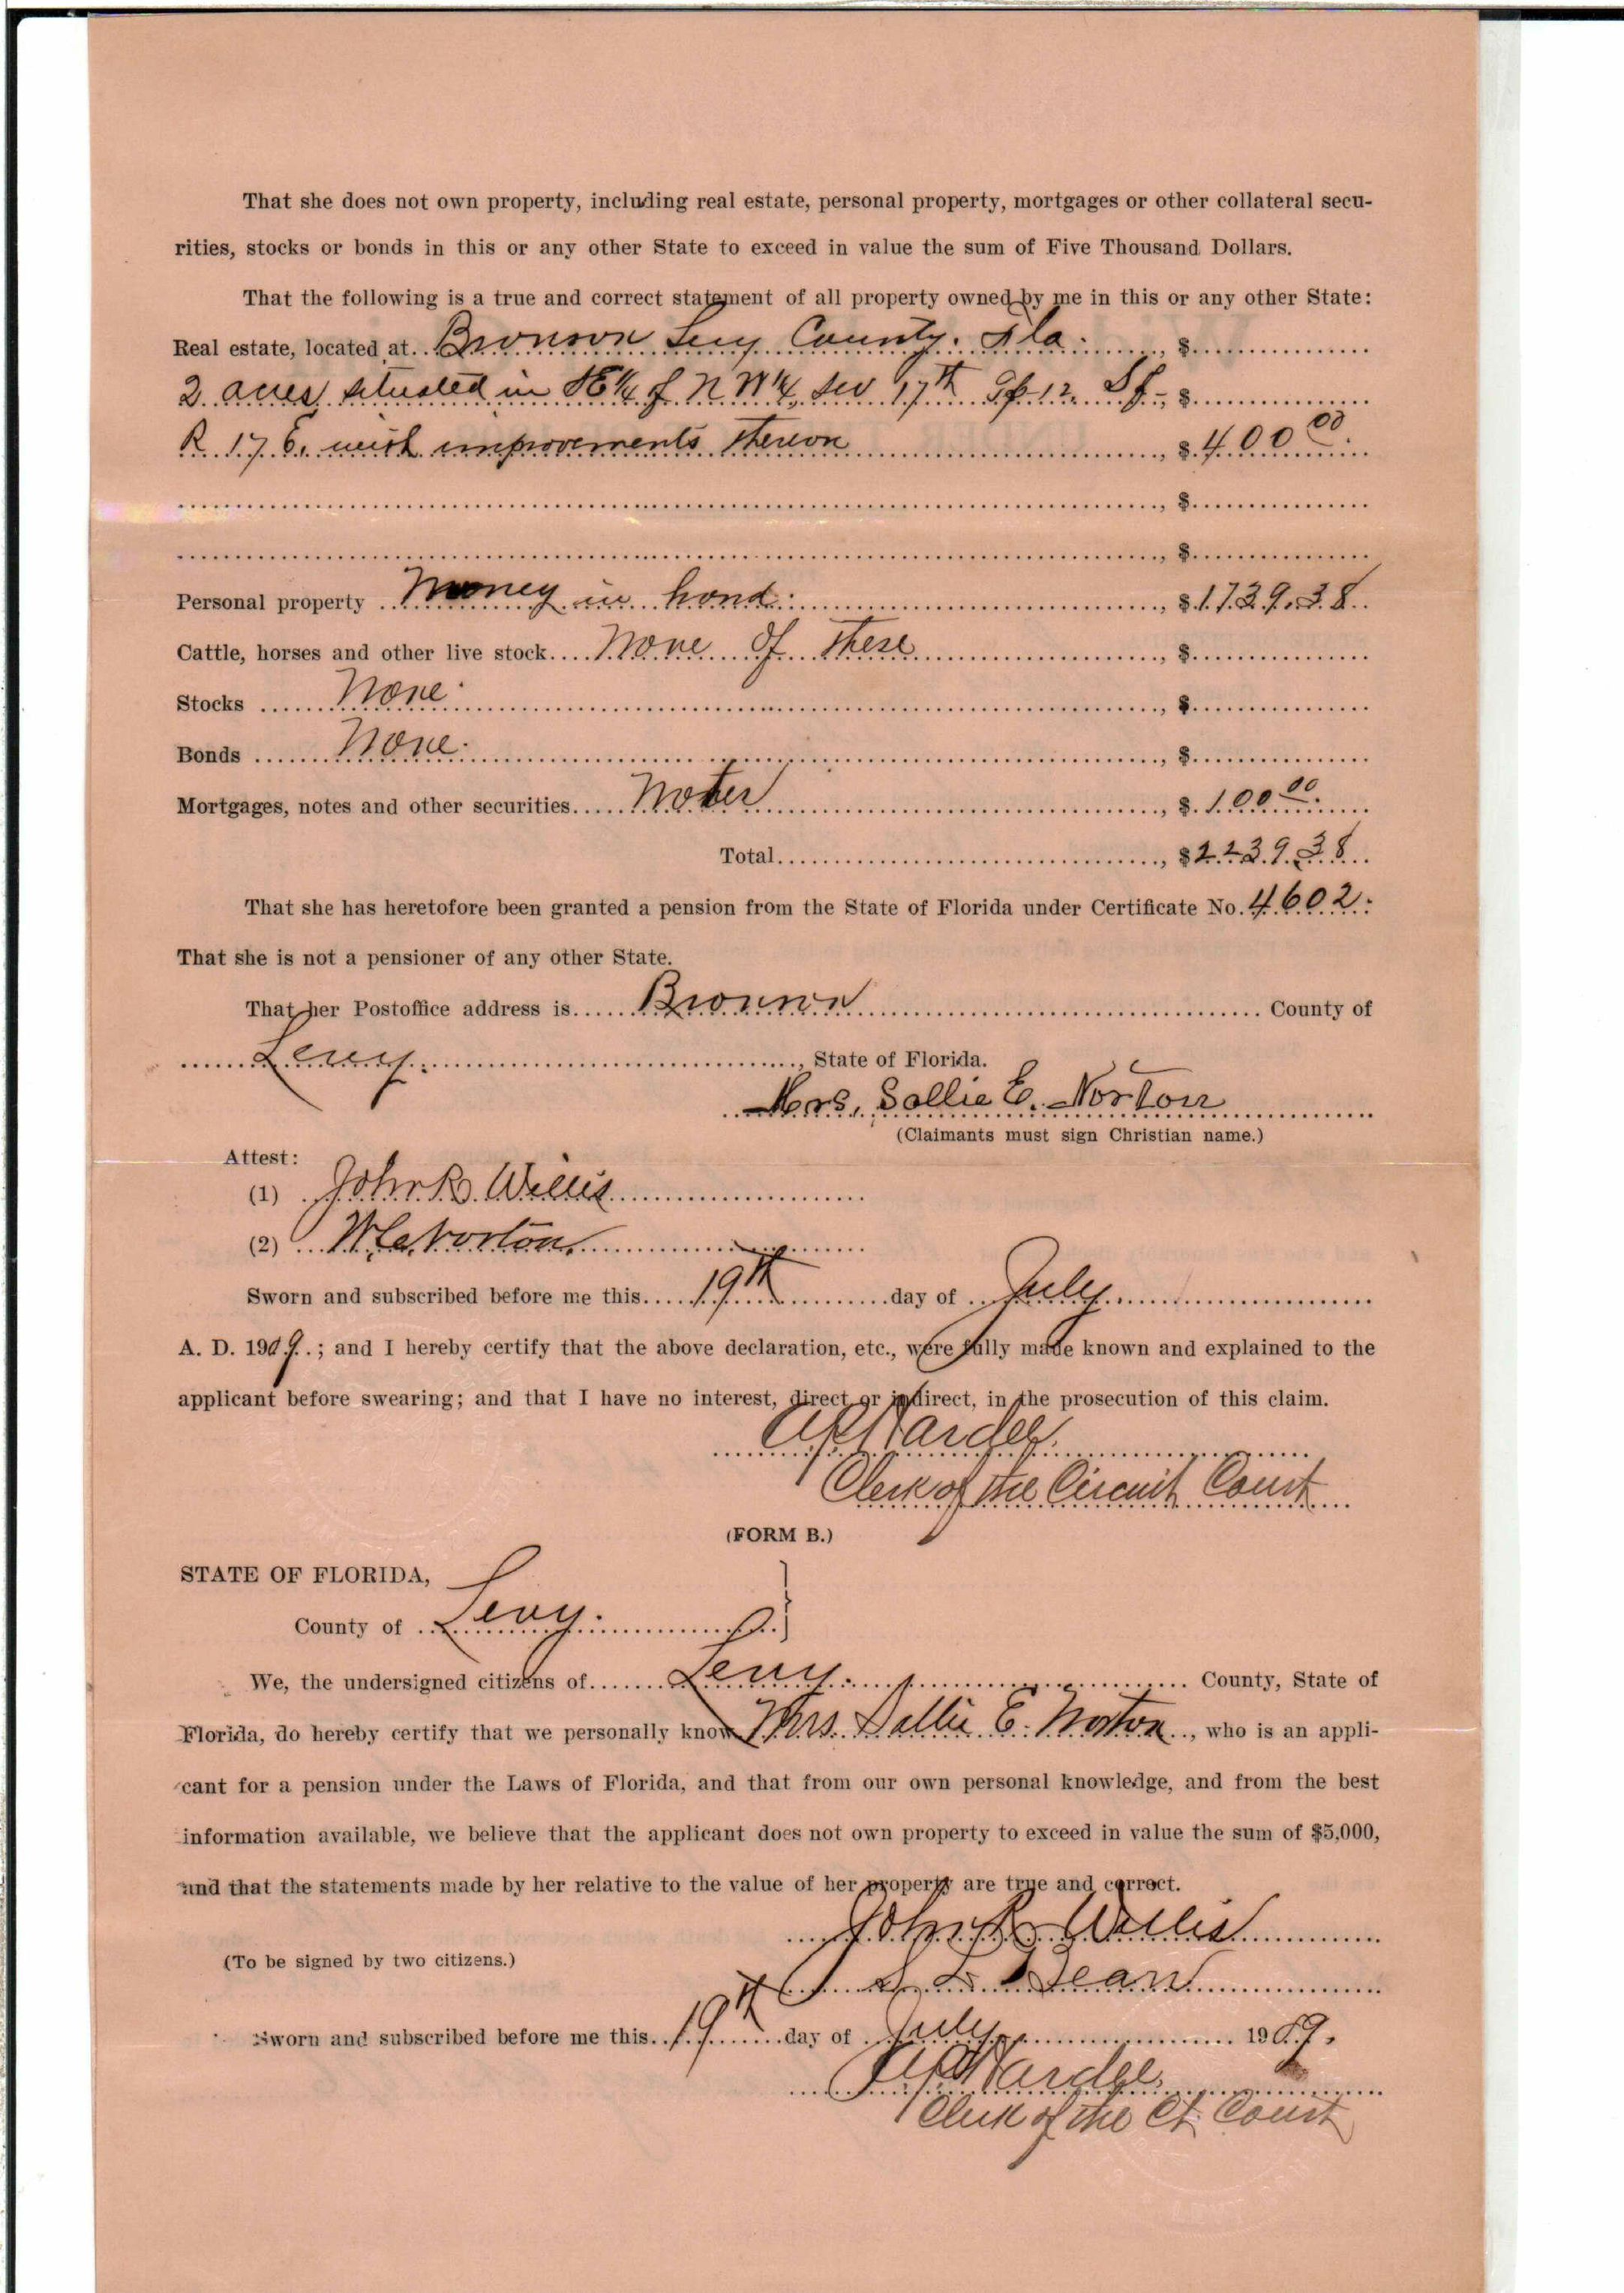 That she does not own property, including real estate, personal property, mortgages or other collateral secu-
rities, stocks or bonds in this or any other State to exceed in value the sum of Five Thousand Dollars.
That the following is a true and correct statement of all property owned by me in this or any other State:
Real estate, located at Bronson Levy County. Fla. , $
2 acres situated in of N W 1/4, sec 17th 12 , $
R 17 E. with improvements thereon , $ 400 00
, $
, $
Personal property Money in hand , $ 1739.38
Cattle, horses and other live stock None of these , $
Stocks None , $
Bonds None , $
Mortgages, notes and other securities Notes , $ 100 00
Total , $ 2239.38
That she has heretofore been granted a pension from the State of Florida under Certificate No. 4602.
That she is not a pensioner of any other State.
That her Postoffice address is Bronson County of
Levy , State of Florida.
Mrs. Sallie E. Norton
(Claimants must sign Christian name.)
Attest:
(1) John R. Willis
(2) Norton
Sworn and subscribed before me this 19th day of July
A. D. 1909. ; and I hereby certify that the above declaration, etc., were fully made known and explained to the
applicant before swearing; and that I have no interest, direct or indirect, in the prosecution of this claim.
Hardee
Clerk of the Circuit Court
(FORM B.)
STATE OF FLORIDA,
County of Levy.
We, the undersigned citizens of Levy. County, State of
Florida, do hereby certify that we personally know Mrs. Sallie E. Norton , who is an appli-
cant for a pension under the Laws of Florida, and that from our own personal knowledge, and from the best
information available, we believe that the applicant does not own property to exceed in value the sum of $5,000,
and that the statements made by her relative to the value of her property are true and correct.
John R Willis
(To be signed by two citizens.)
Bean
Sworn and subscribed before me this 19th day of July 1909.
Hardee
Clerk of the Ct. Court